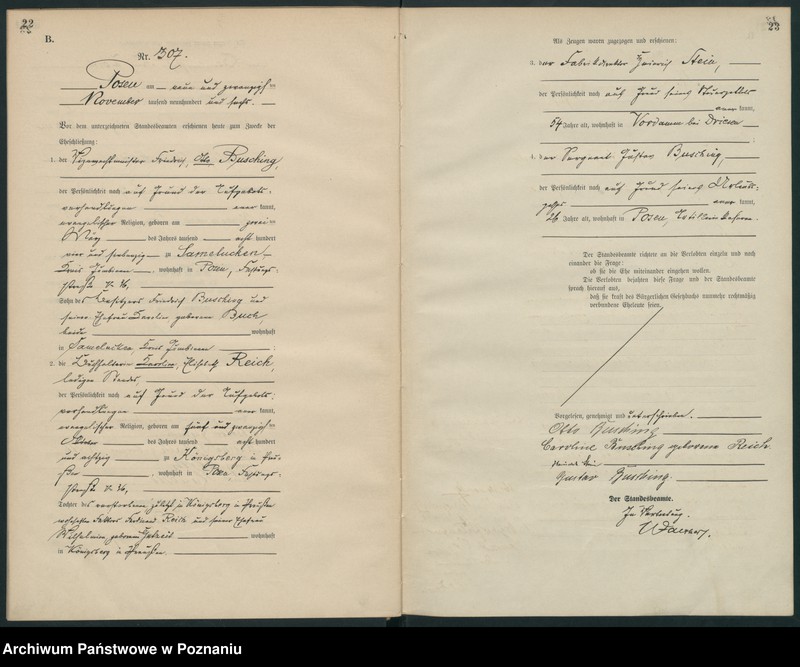 22
B.
Nr. 307.
Posen am neun und zwanzigsten
November tausend neunhundert und sechs.
Vor dem unterzeichneten Standesbeamten erschienen heute zum Zwecke der
Eheschließung:
1. der Vizewachtmeister Friedrich, Otto Busching,
der Persönlichkeit nach auf Grund der Aufgebots-
verhandlungen kannt,
evangelischer Religion, geboren am
März des Jahres tausend acht hundert
vier und siebenzig zu Samelucken
Kreis Gumbinnen, wohnhaft in Posen, Festungs-
straße
Sohn des Besitzers Friedrich Busching und
seiner Ehefrau geborenen Buch,
beide wohnhaft
in Samelucken, Kreis Gumbinnen;
2. die Buchhalterin Karoline, Elisabeth Reich,
ledigen Standes,
der Persönlichkeit nach auf Grund der Aufgebots-
verhandlungen kannt,
evangelischer Religion, geboren am fünf und zwanzigsten
Oktober des Jahres tausend acht hundert
und achtzig zu Königsberg in Preu-
ßen, wohnhaft in Posen, Festungs-
straße
Tochter des verstorbenen, zuletzt in Königsberg in Preußen
wohnhaften Ferdinand Reich und seiner Ehefrau
Wilhelmine, geborenen wohnhaft
in Königsberg in Preußen.
23
Als Zeugen waren zugezogen und erschienen:
3. der Fabrikdirektor Heinrich Stein,
der Persönlichkeit nach auf Grund seines Steuerzettels
kannt,
54 Jahre alt, wohnhaft in Vordamm bei Driesen;
4. der Sergeant Gustav Busching,
der Persönlichkeit nach auf Grund seines Urlaubs-
passes kannt,
26 Jahre alt, wohnhaft in Posen,
Der Standesbeamte richtete an die Verlobten einzeln und nach
einander die Frage:
ob sie die Ehe miteinander eingehen wollen.
Die Verlobten bejahten diese Frage und der Standesbeamte
sprach hierauf aus,
daß sie kraft des Bürgerlichen Gesetzbuchs nunmehr rechtmäßig
verbundene Eheleute seien.
Vorgelesen, genehmigt und unterschrieben.
Otto Busching
Caroline Busching geborene Reich.
Heinrich Stein
Gustav Busching.
Der Standesbeamte.
In Vertretung.
Archiwum Państwowe w Poznaniu